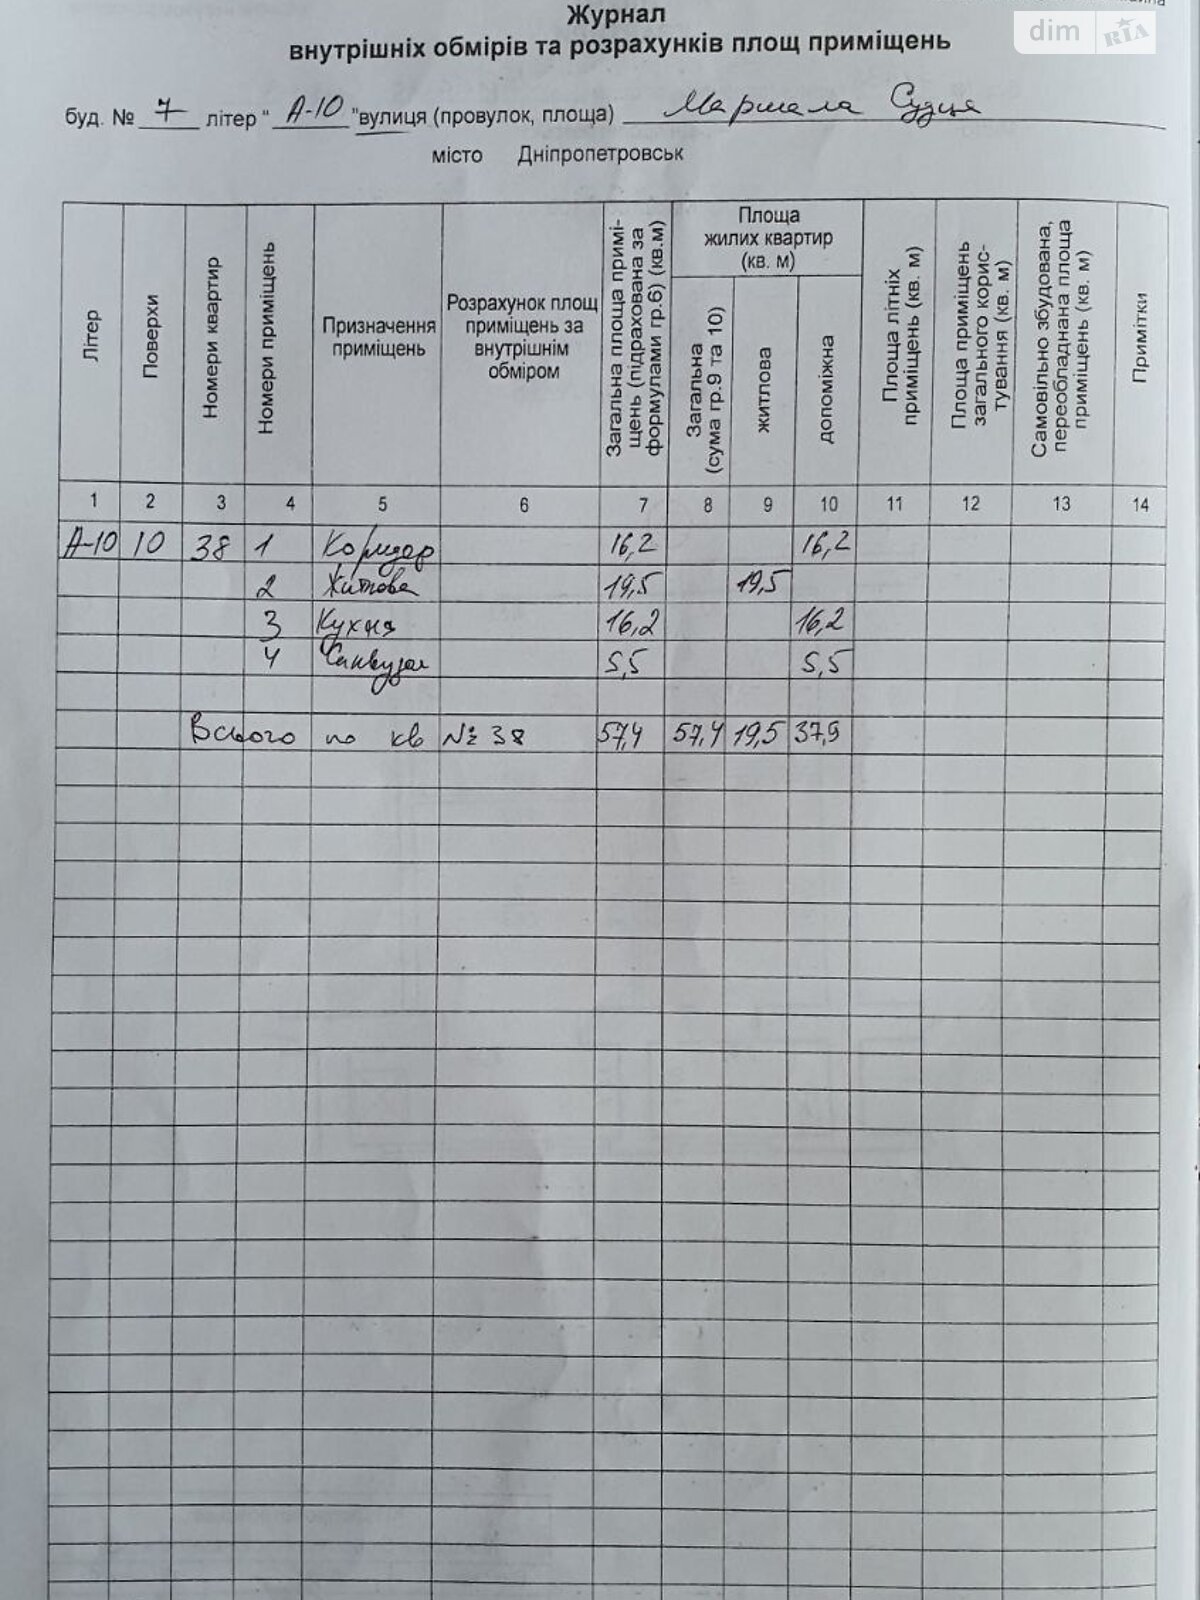 dim RIA
Журнал
внутрішніх обмірів та розрахунків площ приміщень
буд. № 7 літер " А-10 "вулиця (провулок, площа) Маршала Судця
місто Дніпропетровськ
Літер
Поверхи
Номери квартир
Номери приміщень
Призначення приміщень
Розрахунок площ приміщень за внутрішнім обміром
Загальна площа примі-щень (підрахована за формулами гр.6) (кв.м)
Площа жилих квартир (кв. м)
Загальна (сума гр.9 та 10)
житлова
допоміжна
Площа літніх приміщень (кв. м)
Площа приміщень загального корис-тування (кв. м)
Самовільно збудована, переобладнана площа приміщень (кв. м)
Примітки
1 2 3 4 5 6 7 8 9 10 11 12 13 14
А-10 10 38 1 Коридор 16,2 16,2
2 Житлова 19,5 19,5
3 Кухня 16,2 16,2
4 Санвузол 5,5 5,5
Всього по кв № 38 57,4 57,4 19,5 37,9